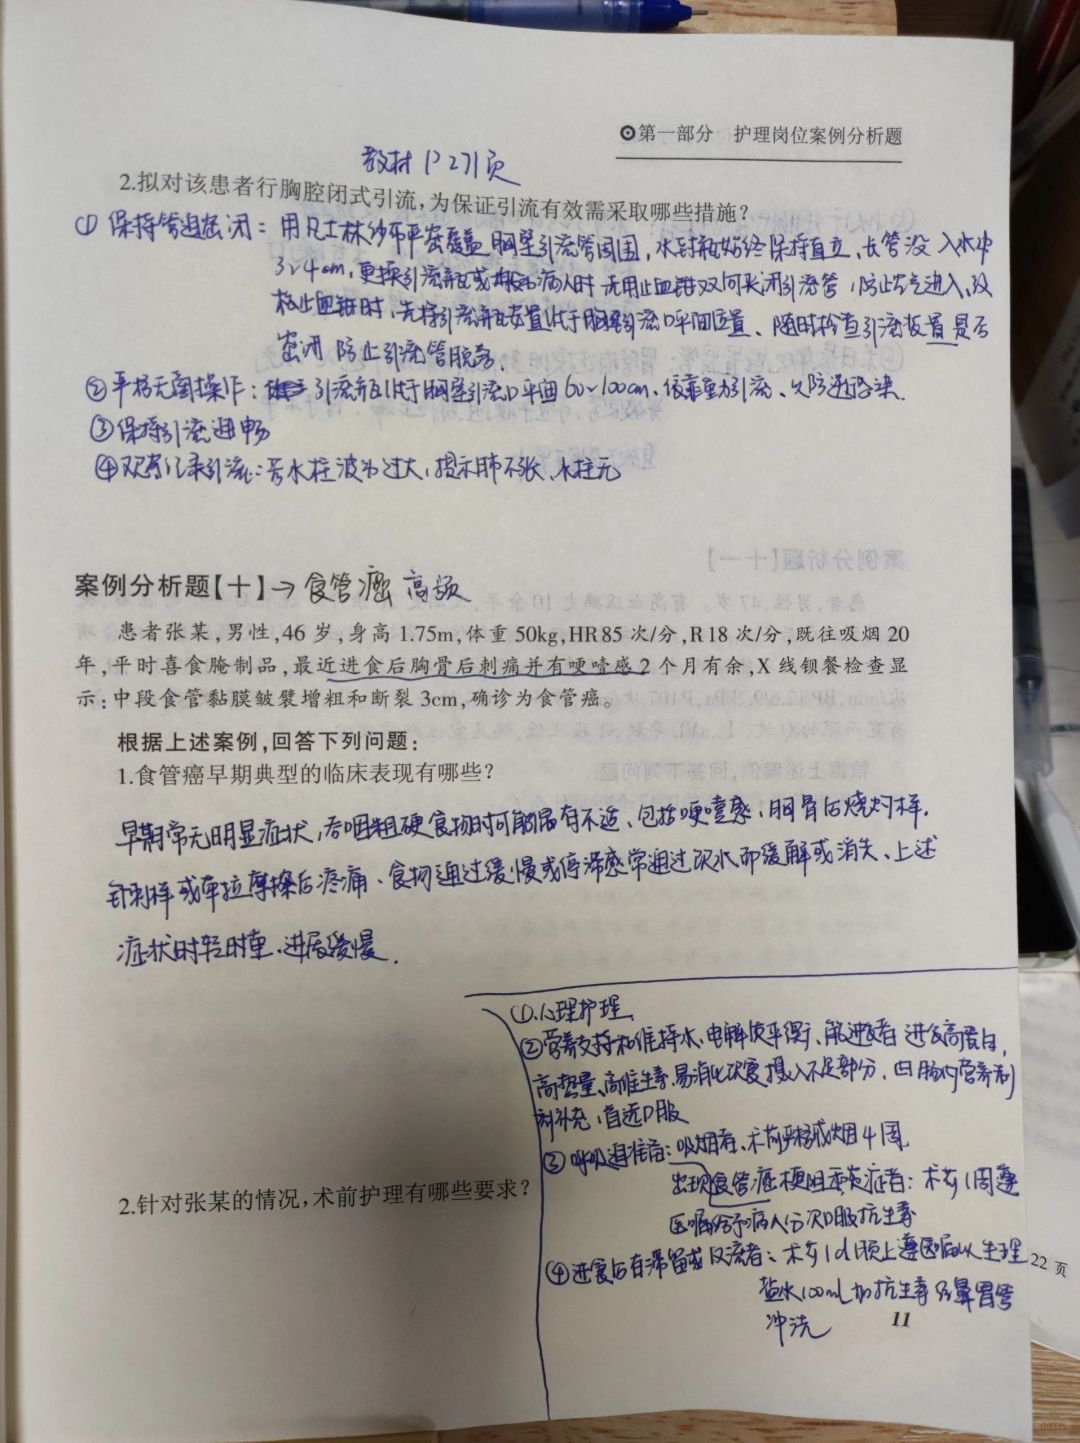 第一部分 护理岗位案例分析题
教材 P271页
2.拟对该患者行胸腔闭式引流,为保证引流有效需采取哪些措施?
① 保持管道密闭：用凡士林纱布严密覆盖胸壁引流管周围,水封瓶始终保持直立,长管没入水中
3~4cm,更换引流瓶或搬动病人时 用止血钳双向夹闭引流管,防止空气进入,放
松止血钳时,先将引流瓶安置低于胸壁引流口平面位置、随时检查引流装置是否
密闭 防止引流管脱落.
②严格无菌操作： 引流瓶低于胸壁引流口平面60~100cm、依靠重力引流、以防逆行感染.
③保持引流通畅
④观察记录引流：若水柱波动过大,提示肺不张、水柱无
案例分析题【十】→食管癌 高频
患者张某,男性,46岁,身高1.75m,体重50kg,HR85次/分,R18次/分,既往吸烟20
年,平时喜食腌制品,最近进食后胸骨后刺痛并有哽噎感2个月有余,X线钡餐检查显
示:中段食管黏膜皱襞增粗和断裂3cm,确诊为食管癌。
根据上述案例,回答下列问题:
1.食管癌早期典型的临床表现有哪些?
早期常无明显症状,吞咽粗硬食物时可能偶有不适、包括哽噎感,胸骨后烧灼样.
针刺样或牵拉摩擦后疼痛、食物通过缓慢或停滞感常通过饮水而缓解或消失、上述
症状时轻时重.进展缓慢.
2.针对张某的情况,术前护理有哪些要求?
①.心理护理
②营养支持和维持水、电解质平衡、能进食者 进食高蛋白,
高热量、高维生素.易消化饮食 摄入不足部分.由肠内营养制
剂补充,首选口服
③呼吸道准备：吸烟者、术前严格戒烟4周
出现食管癌梗阻 炎症者：术前1周遵
医嘱给予病人分次口服抗生素
④进食后有滞留或反流者：术前1d晚上遵医嘱以生理
盐水100mL加抗生素 经鼻胃管
冲洗
11
22 页